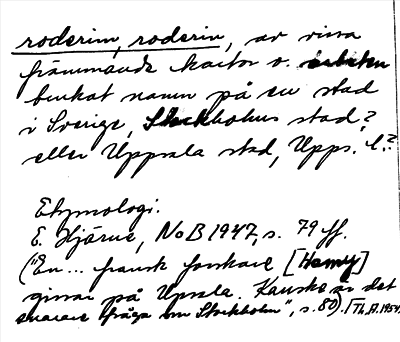 roderim, roderin, av vissa
främmande kartor o. arbeten
brukat namn på en stad
i Sverige, Stockholms stad?
eller Uppsala stad, Upps. l.?
Etymologi.
E. Hjärne, NoB 1947, s. 79 ff.
("En ... fransk forskare [Hamy]
gissar på Upsala. Kanske är det
snarare fråga om Stockholm", s. 80). [Th. A. 1954